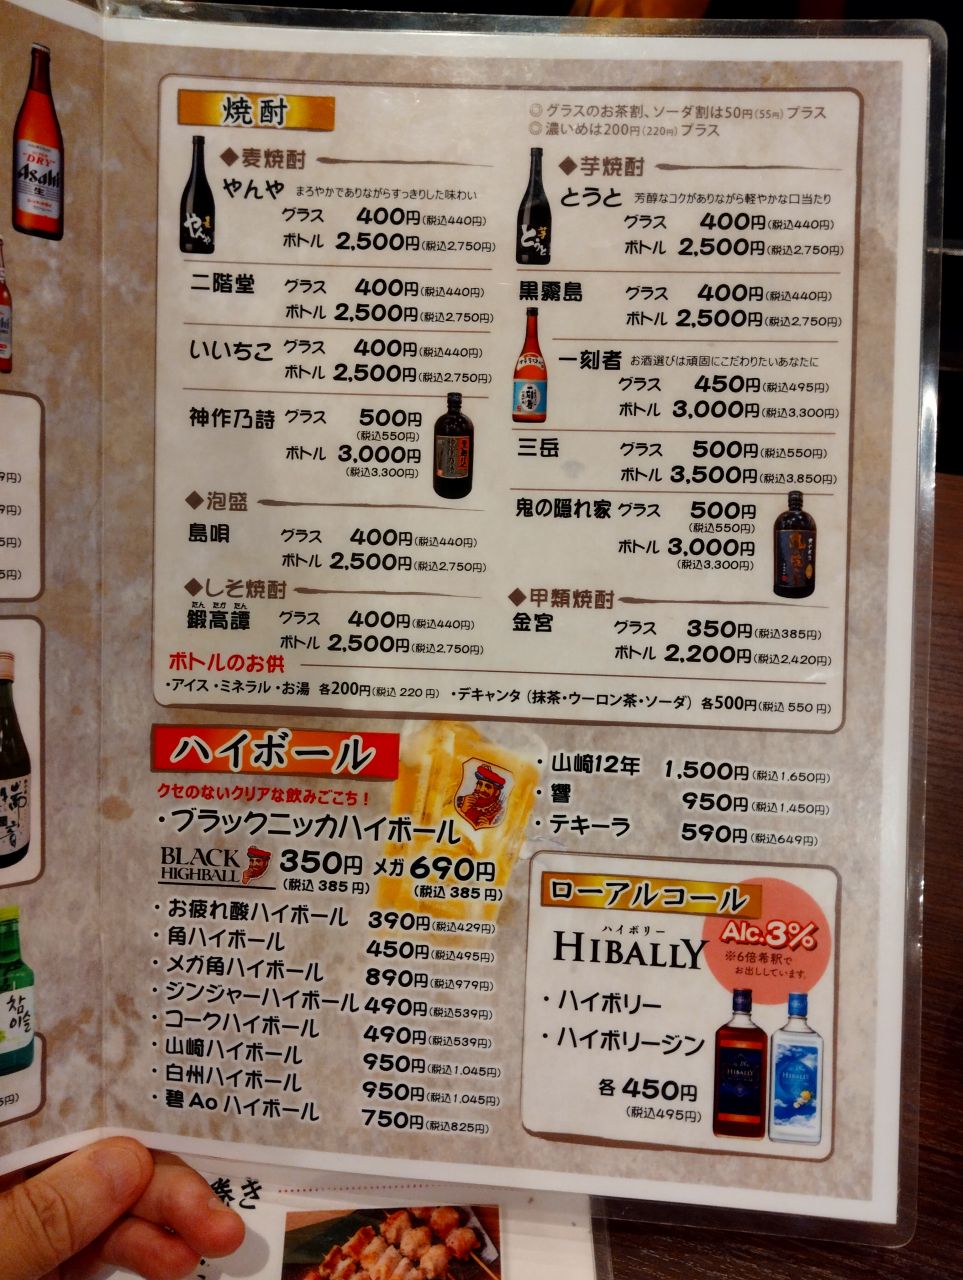 焼酎
◎グラスのお茶割、ソーダ割は50円(55円)プラス
◎濃いめは200円(220円)プラス
◆麦焼酎
やんや まろやかでありながらすっきりした味わい
グラス 400円(税込440円)
ボトル 2,500円(税込2,750円)
二階堂 グラス 400円(税込440円)
ボトル 2,500円(税込2,750円)
いいちこ グラス 400円(税込440円)
ボトル 2,500円(税込2,750円)
神作乃詩 グラス 500円
(税込550円)
ボトル 3,000円
(税込3,300円)
◆泡盛
島唄 グラス 400円(税込440円)
ボトル 2,500円(税込2,750円)
◆しそ焼酎
たん たか たん
鍛高譚 グラス 400円(税込440円)
ボトル 2,500円(税込2,750円)
◆芋焼酎
とうと 芳醇なコクがありながら軽やかな口当たり
グラス 400円(税込440円)
ボトル 2,500円(税込2,750円)
黒霧島 グラス 400円(税込440円)
ボトル 2,500円(税込2,750円)
一刻者 お酒選びは頑固にこだわりたいあなたに
グラス 450円(税込495円)
ボトル 3,000円(税込3,300円)
三岳 グラス 500円(税込550円)
ボトル 3,500円(税込3,850円)
鬼の隠れ家 グラス 500円
(税込550円)
ボトル 3,000円
(税込3,300円)
◆甲類焼酎
金宮 グラス 350円(税込385円)
ボトル 2,200円(税込2,420円)
ボトルのお供
・アイス・ミネラル・お湯 各200円(税込 220 円) ・デキャンタ (抹茶・ウーロン茶・ソーダ) 各500円(税込 550 円)
ハイボール
クセのないクリアな飲みごこち!
・ブラックニッカハイボール
BLACK
HIGHBALL
350円 メガ690円
(税込 385 円) (税込 385 円)
・お疲れ酸ハイボール 390円(税込429円)
・角ハイボール 450円(税込495円)
・メガ角ハイボール 890円(税込979円)
・ジンジャーハイボール 490円(税込539円)
・コークハイボール 490円(税込539円)
・山崎ハイボール 950円(税込1,045円)
・白州ハイボール 950円(税込1,045円)
・碧Aoハイボール 750円(税込825円)
・山崎12年 1,500円(税込1,650円)
・響 950円(税込1,450円)
・テキーラ 590円(税込649円)
ローアルコール
ハイボリー
HIBALLY
Alc.3%
※6倍希釈で
お出ししています。
・ハイボリー
・ハイボリージン
各450円
(税込495円)
HIBALLY
HIBALLY
やんや
とうと
DRY
Asahi
生
참
이슬
巻き